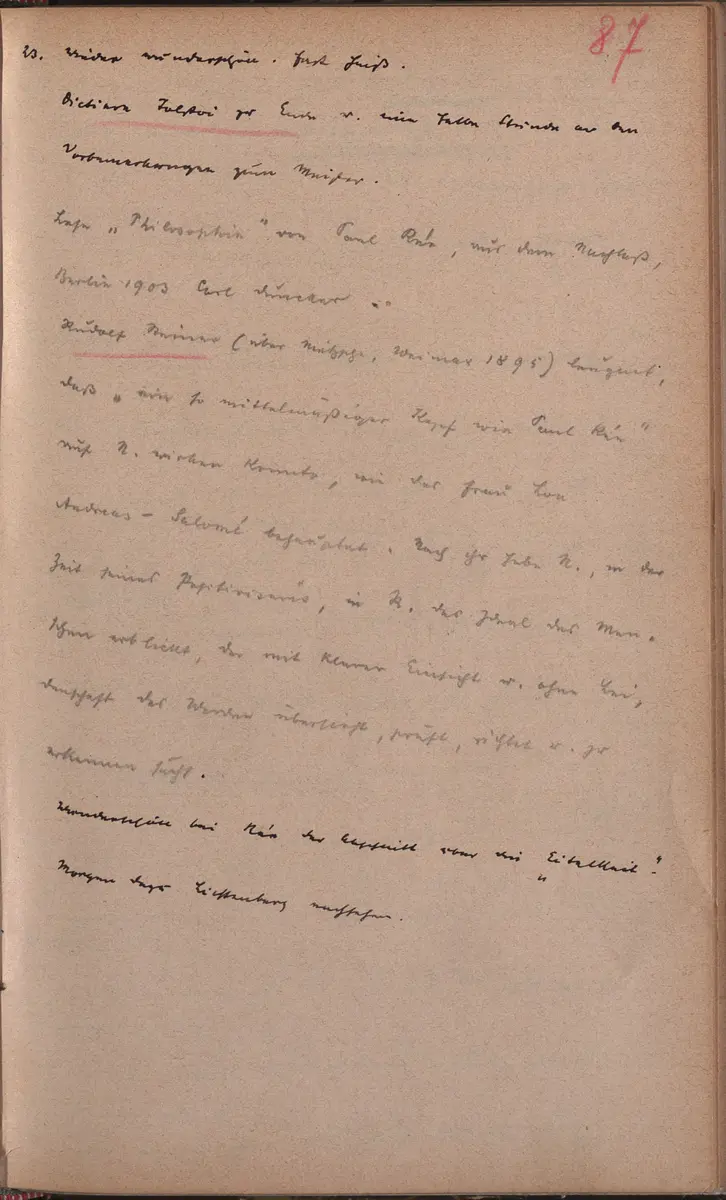 87
23. Wieder wunderschön. Fast heiß.
Dictiere Tolstoi zu Ende u. eine halbe Stunde an den
Vorbemerkungen zum Meister.
Lese „Philosophie" von Paul Rée, aus dem Nachlaß,
Berlin 1903 Carl Duncker.
Rudolf Steiner (über Nietzsche, Weimar 1895) leugnet,
daß „ein so mittelmäßiger Kopf wie Paul Rée"
auf N. wirken konnte, wie das Frau Lou
Andreas-Salomé behauptet. Nach ihr habe N., in der
Zeit seines Positivismus, in R. das Ideal des Men-
schen erblickt, der mit klarer Einsicht u. ohne Lei-
denschaft das Werden übersieht, prüft, richtet u. zu
erkennen sucht.
Wunderschön bei Rée der Abschnitt über die „Eitelkeit".
Morgen dazu Lichtenberg nachsehen.